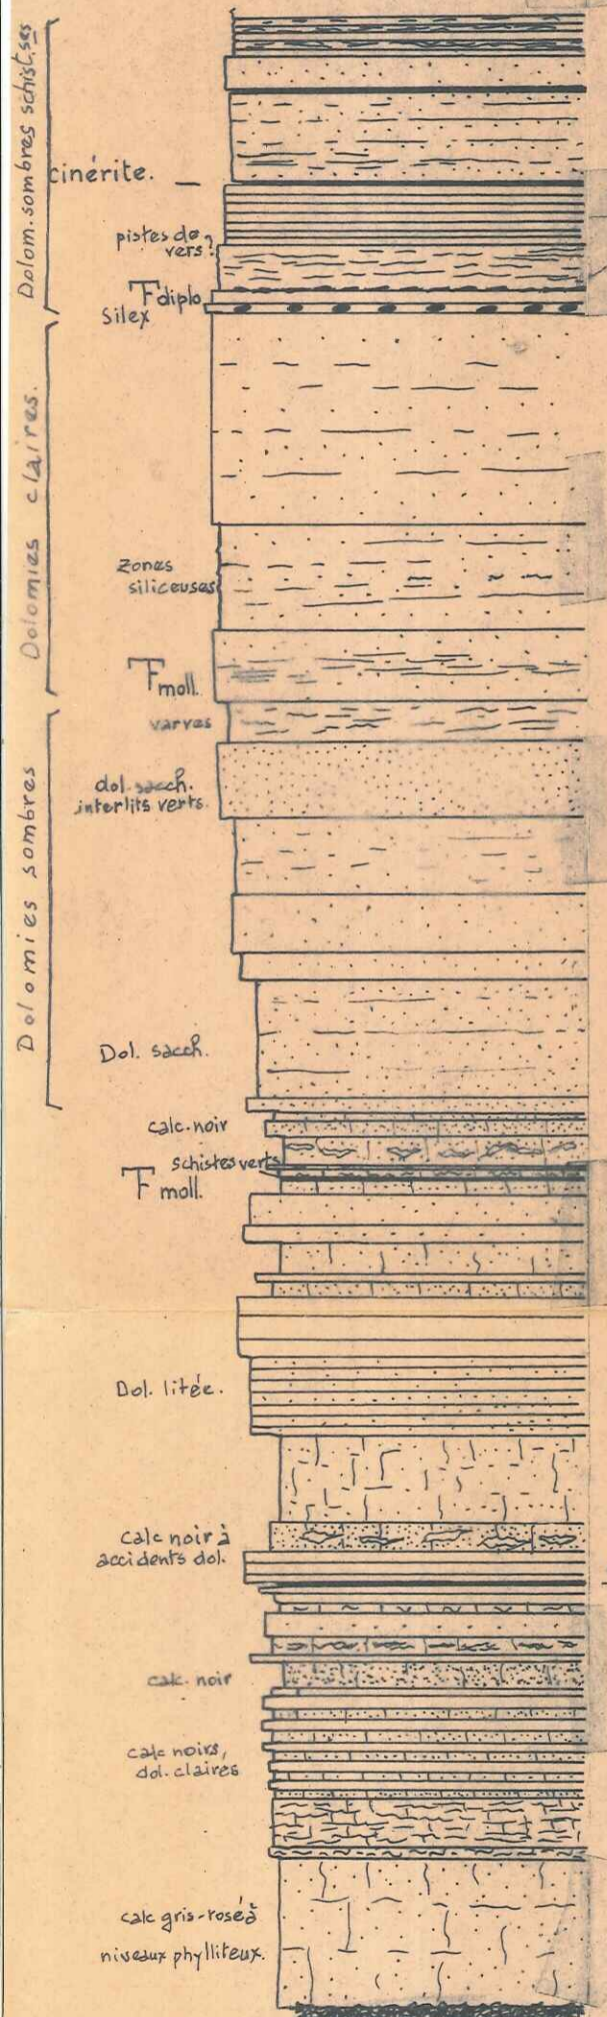 Dolom. sombres schist.ses
cinérite.
pistes de
vers?
F diplo
Silex
Dolomies claires.
zones
siliceuses
F moll.
varves
Dolomies sombres
dol. sacch.
interlits verts.
Dol. sacch.
calc. noir
schistes verts
F moll.
Dol. litée.
calc noir à
accidents dol.
calc. noir
calc noirs,
dol. claires
calc gris-rosé à
niveaux phylliteux.